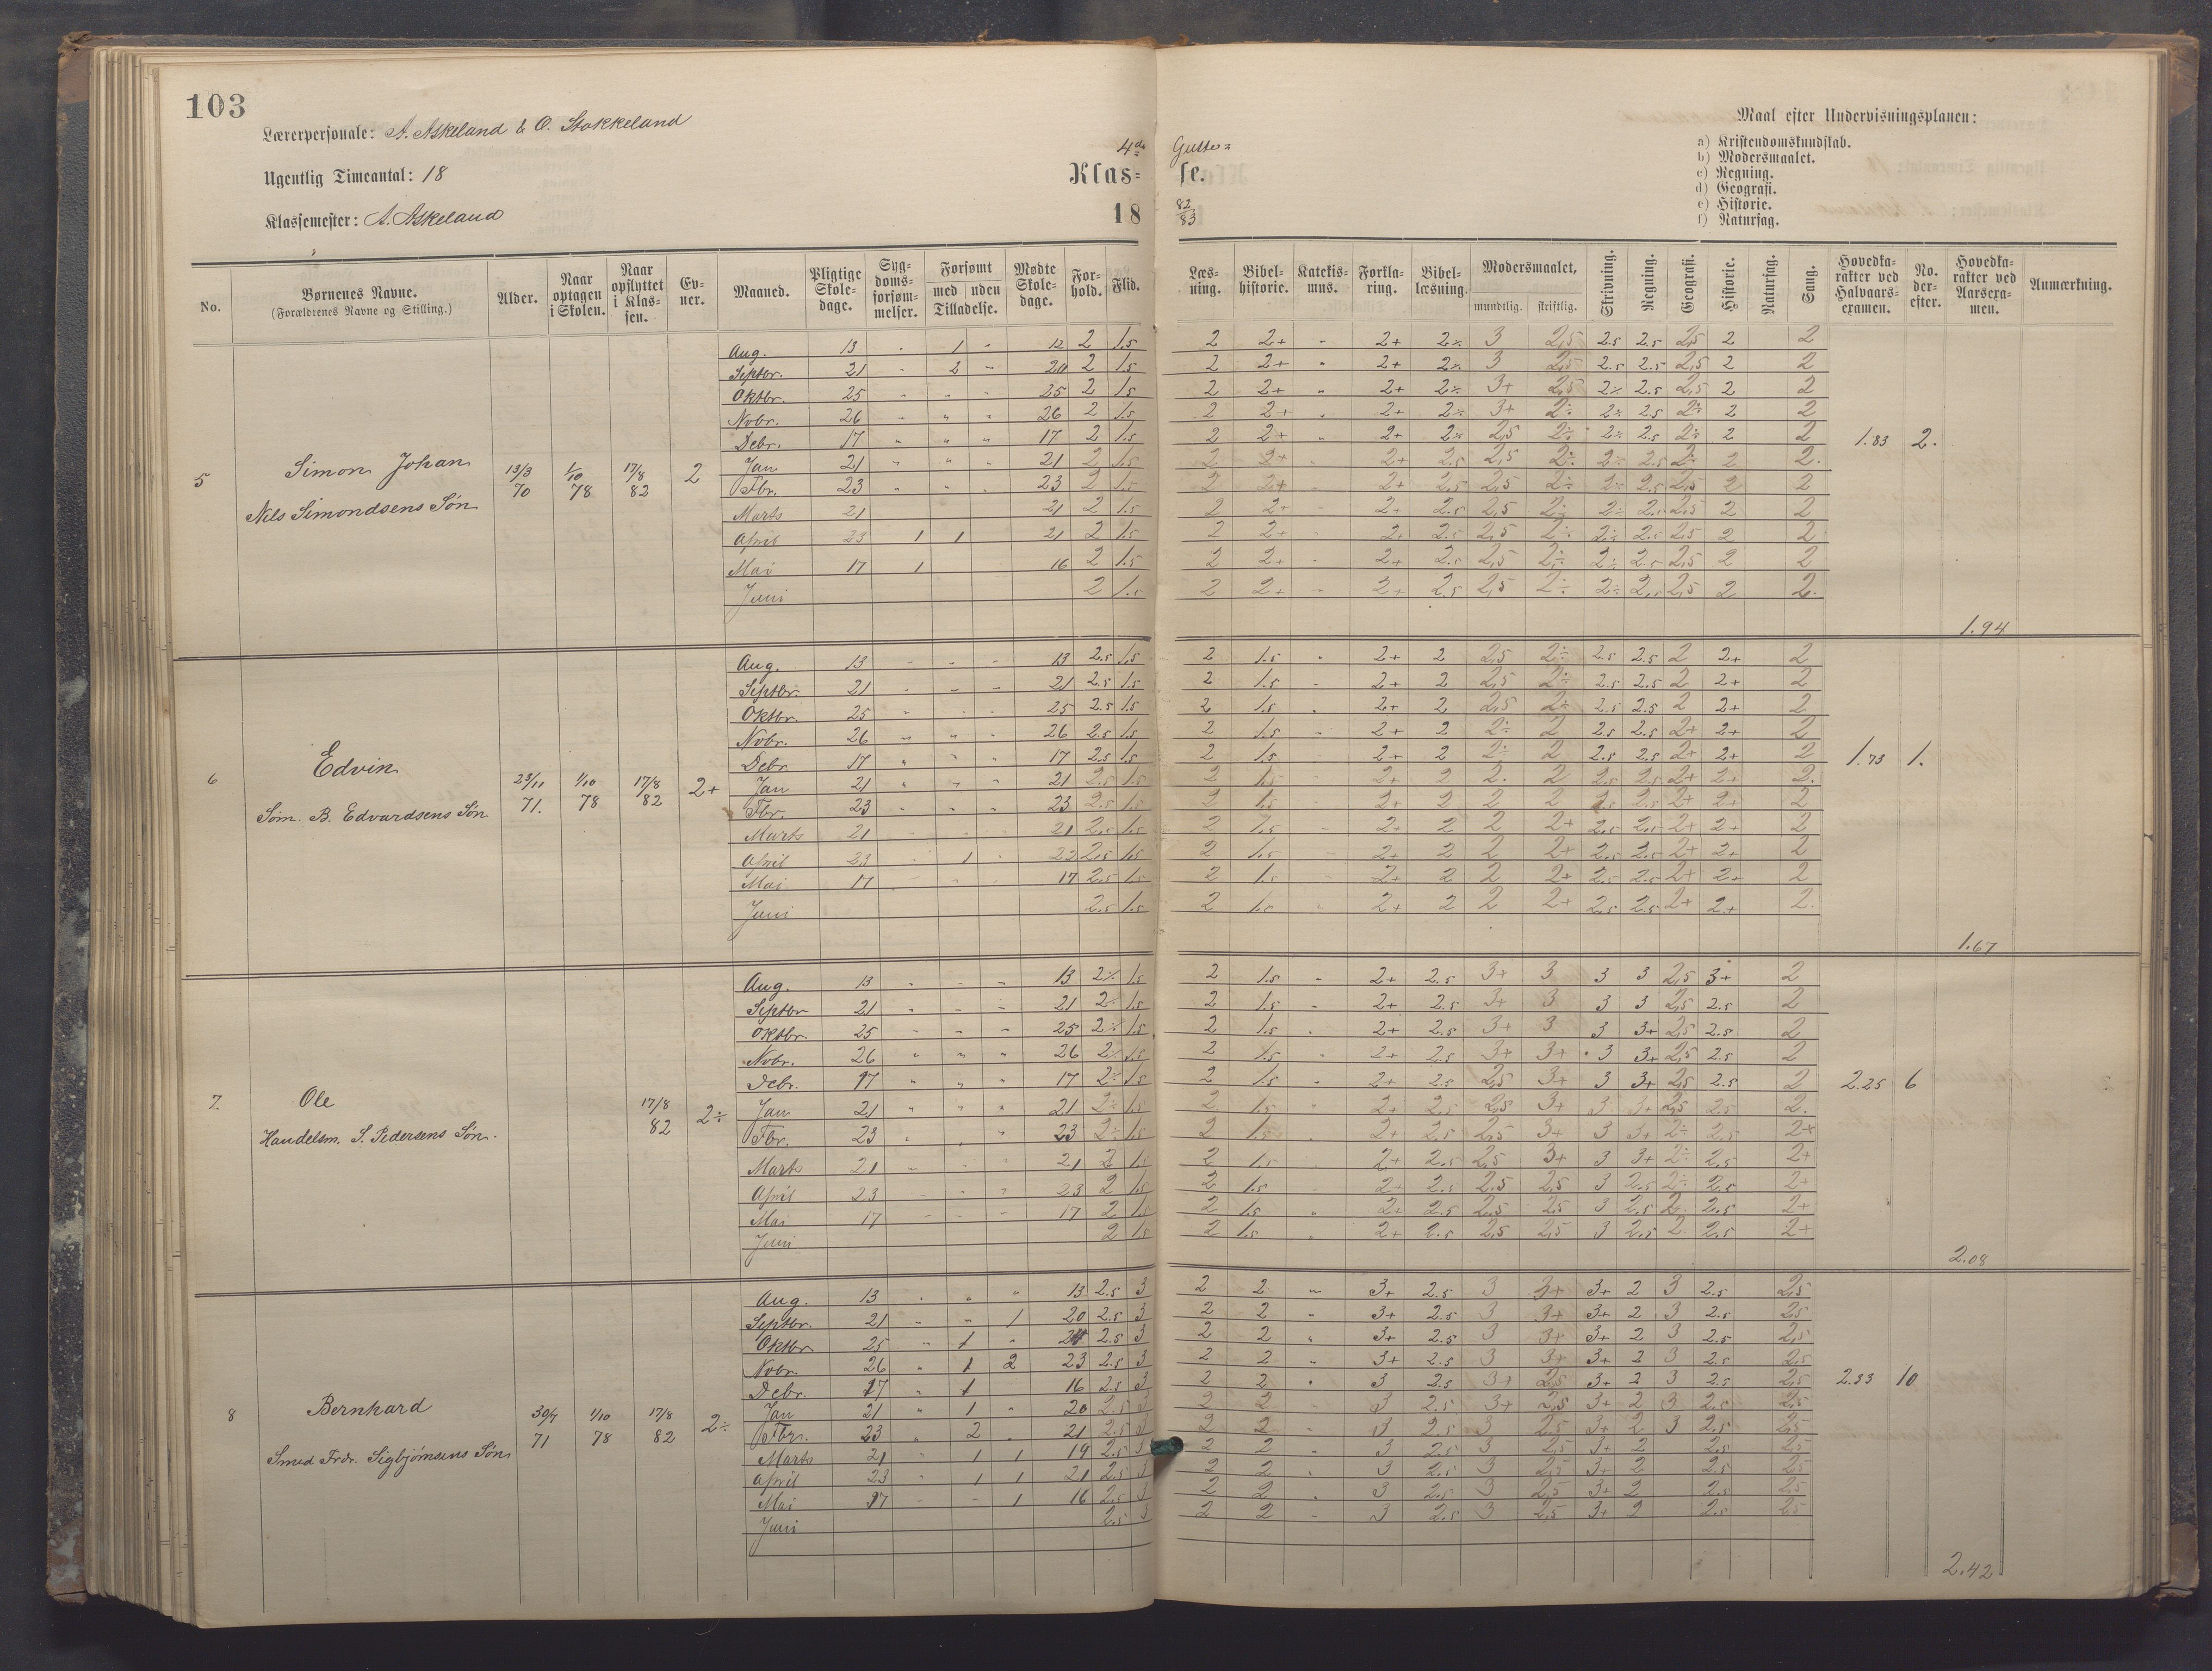 103
Lærerpersonale: A. Askeland & O. Stokkeland
Ugentlig Timeantal: 18
Klassemester: A. Askeland
4de Gutte=
Klas= se.
18 82/83
Maal efter Undervisningsplanen:
a) Kristendomskundskab.
b) Modersmaalet.
c) Regning.
d) Geografi.
e) Historie.
f) Naturfag.
No. | Børnenes Navne. (Forældrenes Navne og Stilling.) | Alder. | Naar optagen i Skolen. | Naar opflyttet i Klassen. | Evner. | Maaned. | Pligtige Skoledage. | Sygdomsforsømmelser. | Forsømt med uden Tilladelse. | Mødte Skoledage. | Forhold. | Flid. | Læsning. | Bibelhistorie. | Katekismus. | Forklaring. | Bibellæsning. | Modersmaalet, mundtlig. skriftlig. | Skrivning. | Regning. | Geografi. | Historie. | Naturfag. | Sang. | Hovedkarakter ved Halvaarsexamen. | No. derefter. | Hovedkarakter ved Aarsexamen. | Anmærkning.
5 Simon Johan 13/3 70 1/10 78 17/8 82 2
Nils Simondsens Søn
Aug. 13 - 1 - 12 2 1.5 2 2+ - 2+ 2÷ 3 2,5 2.5 2.5 2,5 2 2
Septbr. 21 - 2 - 20 2 1.5 2 2+ " 2+ 2÷ 3 2,5 2.5 2.5 2,5 2 2
Oktbr. 25 - - - 25 2 1.5 2 2+ " 2+ 2÷ 3+ 2,5 2÷ 2.5 2,5 2 2
Nobr. 26 - " - 26 2 1.5 2 2+ " 2+ 2÷ 3+ 2÷ 2÷ 2.5 2÷ 2 2
Debr. 17 " " " 17 2 1.5 2 2+ " 2+ 2÷ 2,5 2÷ 2÷ 2.5 2÷ 2 2 1.83 2.
Jan 21 " " " 21 2 1.5 2 2+ 2+ 2.5 2,5 2÷ 2÷ 2.5 2÷ 2 2.
Fbr. 23 " " . 23 2 1.5 2 2+ 2+ 2.5 2,5 2÷ 2÷ 2.5 2,5 2 2
Marts 21 21 2 1.5 2 2+ - 2+ 2.5 2,5 2÷ 2÷ 2.5 2,5 2 2
April 23 1 1 21 2 1.5 2 2+ - 2+ 2.5 2,5 2÷ 2÷ 2.5 2,5 2 2
Mai 17 1 16 2 1.5 2 2+ - 2+ 2.5 2,5 2÷ 2÷ 2.5 2,5 2 2
Juni 2 1.5 2 2+ - 2+ 2.5 2,5 2÷ 2÷ 2.5 2,5 2 2.
1.94
6 Edvin 23/11 71. 1/10 78 17/8 82 2+
Søm. B. Edvardsens Søn
Aug. 13 - - - 13 2.5 1.5 2 1.5 " 2+ 2 2,5 2÷ 2.5 2.5 2 2+ 2
Septbr. 21 - - - 21 2.5 1.5 2 1.5 - 2+ 2 2,5 2÷ 2.5 2.5 2 2+ 2
Oktbr. 25 - - - 25 2.5 1.5 2 1.5 " 2+ 2 2,5 2÷ 2.5 2.5 2 2+ 2
Nobr. 26 " " - 26 2.5 1.5 2 1.5 - 2+ 2 2÷ 2 2.5 2.5 2+ 2+ 2
Debr 17 " " " 17 2.5 1.5 2 1.5 " 2+ 2 2÷ 2 2.5 2.5 2+ 2+ 2 1.73 1.
Jan 21 " " " 21 2.5 1.5 2 1.5 - 2+ 2 2. 2 2.5 2.5 2+ 2+ 2.
Fbr. 23 - - " 23 2.5 1.5 2 1.5 - 2+ 2 2 2 2.5 2.5 2+ 2+ 2
Marts 21 - - - 21 2.5 1.5 2 1.5 - 2+ 2 2 2+ 2.5 2.5 2+ 2+ 2
April 23 - 1 - 22 2.5 1.5 2 1.5 - 2+ 2 2 2+ 2.5 2.5 2+ 2+ 2
Mai 17 - - - 17 2.5 1.5 2 1.5 - 2+ 2 2 2+ 2.5 2.5 2+ 2+ 2
Juni 2.5 1.5 2 1.5 " 2+ 2 2 2+ 2.5 2.5 2+ 2+ 2.
1.67
7. Ole 17/8 82 2÷
Handelsm. S. Pedersens Søn.
Aug. 13 - - - 13 2÷ 1.5 2 1.5 - 2+ 2.5 3+ 3 3 3 2,5 3+ 2
Septbr 21 " - - 21 2÷ 1.5 2 1.5 - 2+ 2.5 3+ 3 3 3 2,5 2.5 2
Oktbr. 25 - - - 25 2÷ 1.5 2 1.5 " 2+ 2.5 3+ 3 3 3+ 2,5 2.5 2
Nobr. 26 " " " 26 2÷ 1.5 2 1.5 " 2+ 2.5 3+ 3+ 3 3+ 2,5 2.5 2
Debr. 17 " " " 17 2÷ 1.5 2 1.5 " 2+ 2.5 2,5 3+ 3 3+ 2,5 2.5 2 2.25 6
Jan 21 " " " 21 2÷ 1.5 2 1.5 " 2+ 2.5 2,5 3+ 3 3+ 2,5 2.5 2.
Fbr. 23 " " " 23 2÷ 1.5 2 1.5 2+ 2.5 2,5 3+ 3 3+ 2÷ 2.5 2+
Marts 21 - - " 21 2 1.5 2 1.5 2+ 2.5 2,5 3+ 3 3+ 2÷ 2.5 2+
April 23 - " " 23 2 1.5 2 1.5 - 2+ 2.5 2.5 2,5 3 2.5 2÷ 2.5 2+
Mai 17 - - - 17 2 1.5 2 1.5 " 2+ 2.5 2.5 2.5 3 2.5 2. 2.5 2+
Juni 2 1.5 2 1.5 " 2+ 2.5 2,5 2,5 3 2.5 2. 2.5 2+
2.08
8 Bernhard 30/7 71 1/10 78 17/8 82 2÷
Smed Frdr. Sigbjørnsens Søn
Aug. 13 - " " 13 2.5 3 2 2 " 3+ 2.5 3 3+ 3+ 2 3 2.5 2,5
Septbr. 21 - " 1 20 2.5 3 2 2 " 3+ 2.5 3 3+ 3+ 2 3 2.5 2,5
Oktbr. 25 " 1 " 24 2.5 3 2 2 " 3+ 2.5 3 3+ 3+ 2 3 2.5 2,5
Nobr. 26 " 1 2 23 2.5 3 2 2 " 3+ 2.5 3 3+ 3+ 2 3 2.5 2,5
Debr. 17 " 1 16 2.5 3 2 2 " 3 2.5 3+ 2,5 3+ 2 3 2.5 2,5 2.33 10
Jan 21 " 1 " 20 2.5 3 2 2 3 2.5 3+ 2,5 3+ 2 3 2.5 2,5
Fbr. 23 " 2 " 21 2.5 3 2 2 3 2.5 3 2.5 3+ 2 3 2.5 2,5
Marts 21 - 1 1 19 2.5 3 2 2 " 3 2.5 3 2,5 3+ 2 2.5 2,5
April 23 - 1 1 21 2.5 3 2 2 " 3 2.5 3 2,5 3+ 2 2.5 2,5
Mai 17 - - 1 16 2.5 3 2 2 " 3 2.5 3 2,5 3+ 2 2.5 2,5
Juni 2.5 3 2 2 - 3 2.5 3 2,5 3+ 2 2.5 2,5
2.42